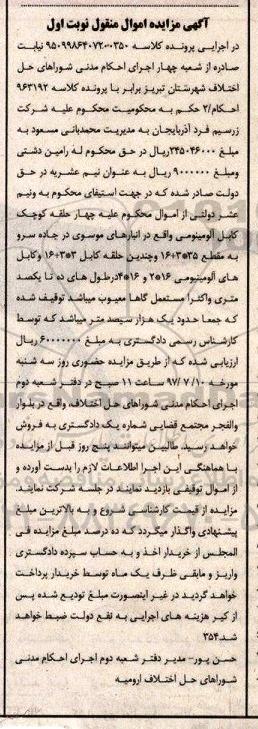 آگهی مزایده اموال منقول نوبت اول
در اجرایی پرونده کلاسه ۹۵۰۹۹۸۶۴۰۷۲۰۰۳۵۰ نیابت
صادره از شعبه چهار اجرای احکام مدنی شوراهای حل
اختلاف شهرستان تبریز برابر با پرونده کلاسه ۹۶۳۱۹۲
احکام/۲ حکم به محکومیت محکوم علیه شرکت
زرسیم فرد آذربایجان به مدیریت محمدبانی مسعود به
مبلغ ۳۴۵۰۴۶۰۰۰ریال در حق محکوم له رامین دشتی
ومبلغ ۹۰۰۰۰۰۰ ریال به عنوان نیم عشریه در حق
دولت صادر شده که در جهت استیفای محکوم به ونیم
عشر دولتی از اموال محکوم علیه چهار حلقه کوچک
کابل آلومینومی واقع در انبارهای موسوی در جاده سرو
به مقطع ۳۵*۳+۱۶ وچندین حلقه کابل ۳*۳+۱۶ وکابل
های آلومینیومی ۱۶*۲ و ۱۶*۴درطول های ده تا یکصد
متری واکثرا مستعمل گاها معیوب میباشد توقیف شده
که جمعا حدود یک هزار سیصد متر میباشد که توسط
کارشناس رسمی دادگستری به مبلغ ۶۰۰۰۰۰۰۰ ریال
ارزیابی شده که از طریق مزایده حضوری روز سه شنبه
مورخه ۹۷/۷/۱۰ ساعت ۱۱ صبح در دفتر شعبه دوم
اجرای احکام مدنی شوراهای حل اختلاف، واقع در بلوار
والفجر مجتمع قضایی شماره یک دادگستری به فروش
خواهد رسید. طالبین میتوانند پنج روز قبل از مزایده
با هماهنگی این اجرا اطلاعات لازم را بدست آورده و
از اموال توقیفی بازدید نمایند در جلسه شرکت نمایند.
مزایده از قیمت کارشناسی شروع و به بالاترین مبلغ
پیشنهادی واگذار میگردد که ده درصد مبلغ مزایده فی
المجلس از خریدار اخذ و به حساب سپرده دادگستری
واریز و مابقی ظرف یک ماه توسط خریدار پرداخت
خواهد گردید در غیر اینصورت مبلغ تودیع شده پس
از کسر هزینه های اجرایی به نفع دولت ضبط خواهد
شد.۳۵۴
حسن پور- مدیر دفتر شعبه دوم اجرای احکام مدنی
شوراهای حل اختلاف ارومیه